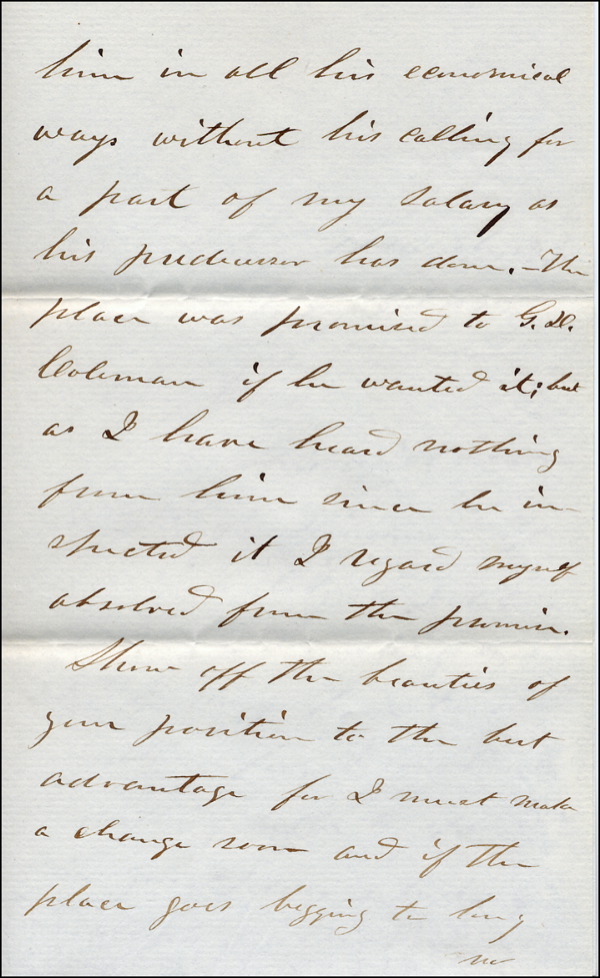 him in all his economical
ways without his calling for
a part of my salary as
his predecessor has done. – The
place was promised to G. W.
Coleman if he wanted it; but
as I have heard nothing
from him since he in-
spected it I regard myself
absolved from the promise.
Show off the beauties of
your position to the best
advantage for I must make
a change soon and if the
place goes begging to long
no